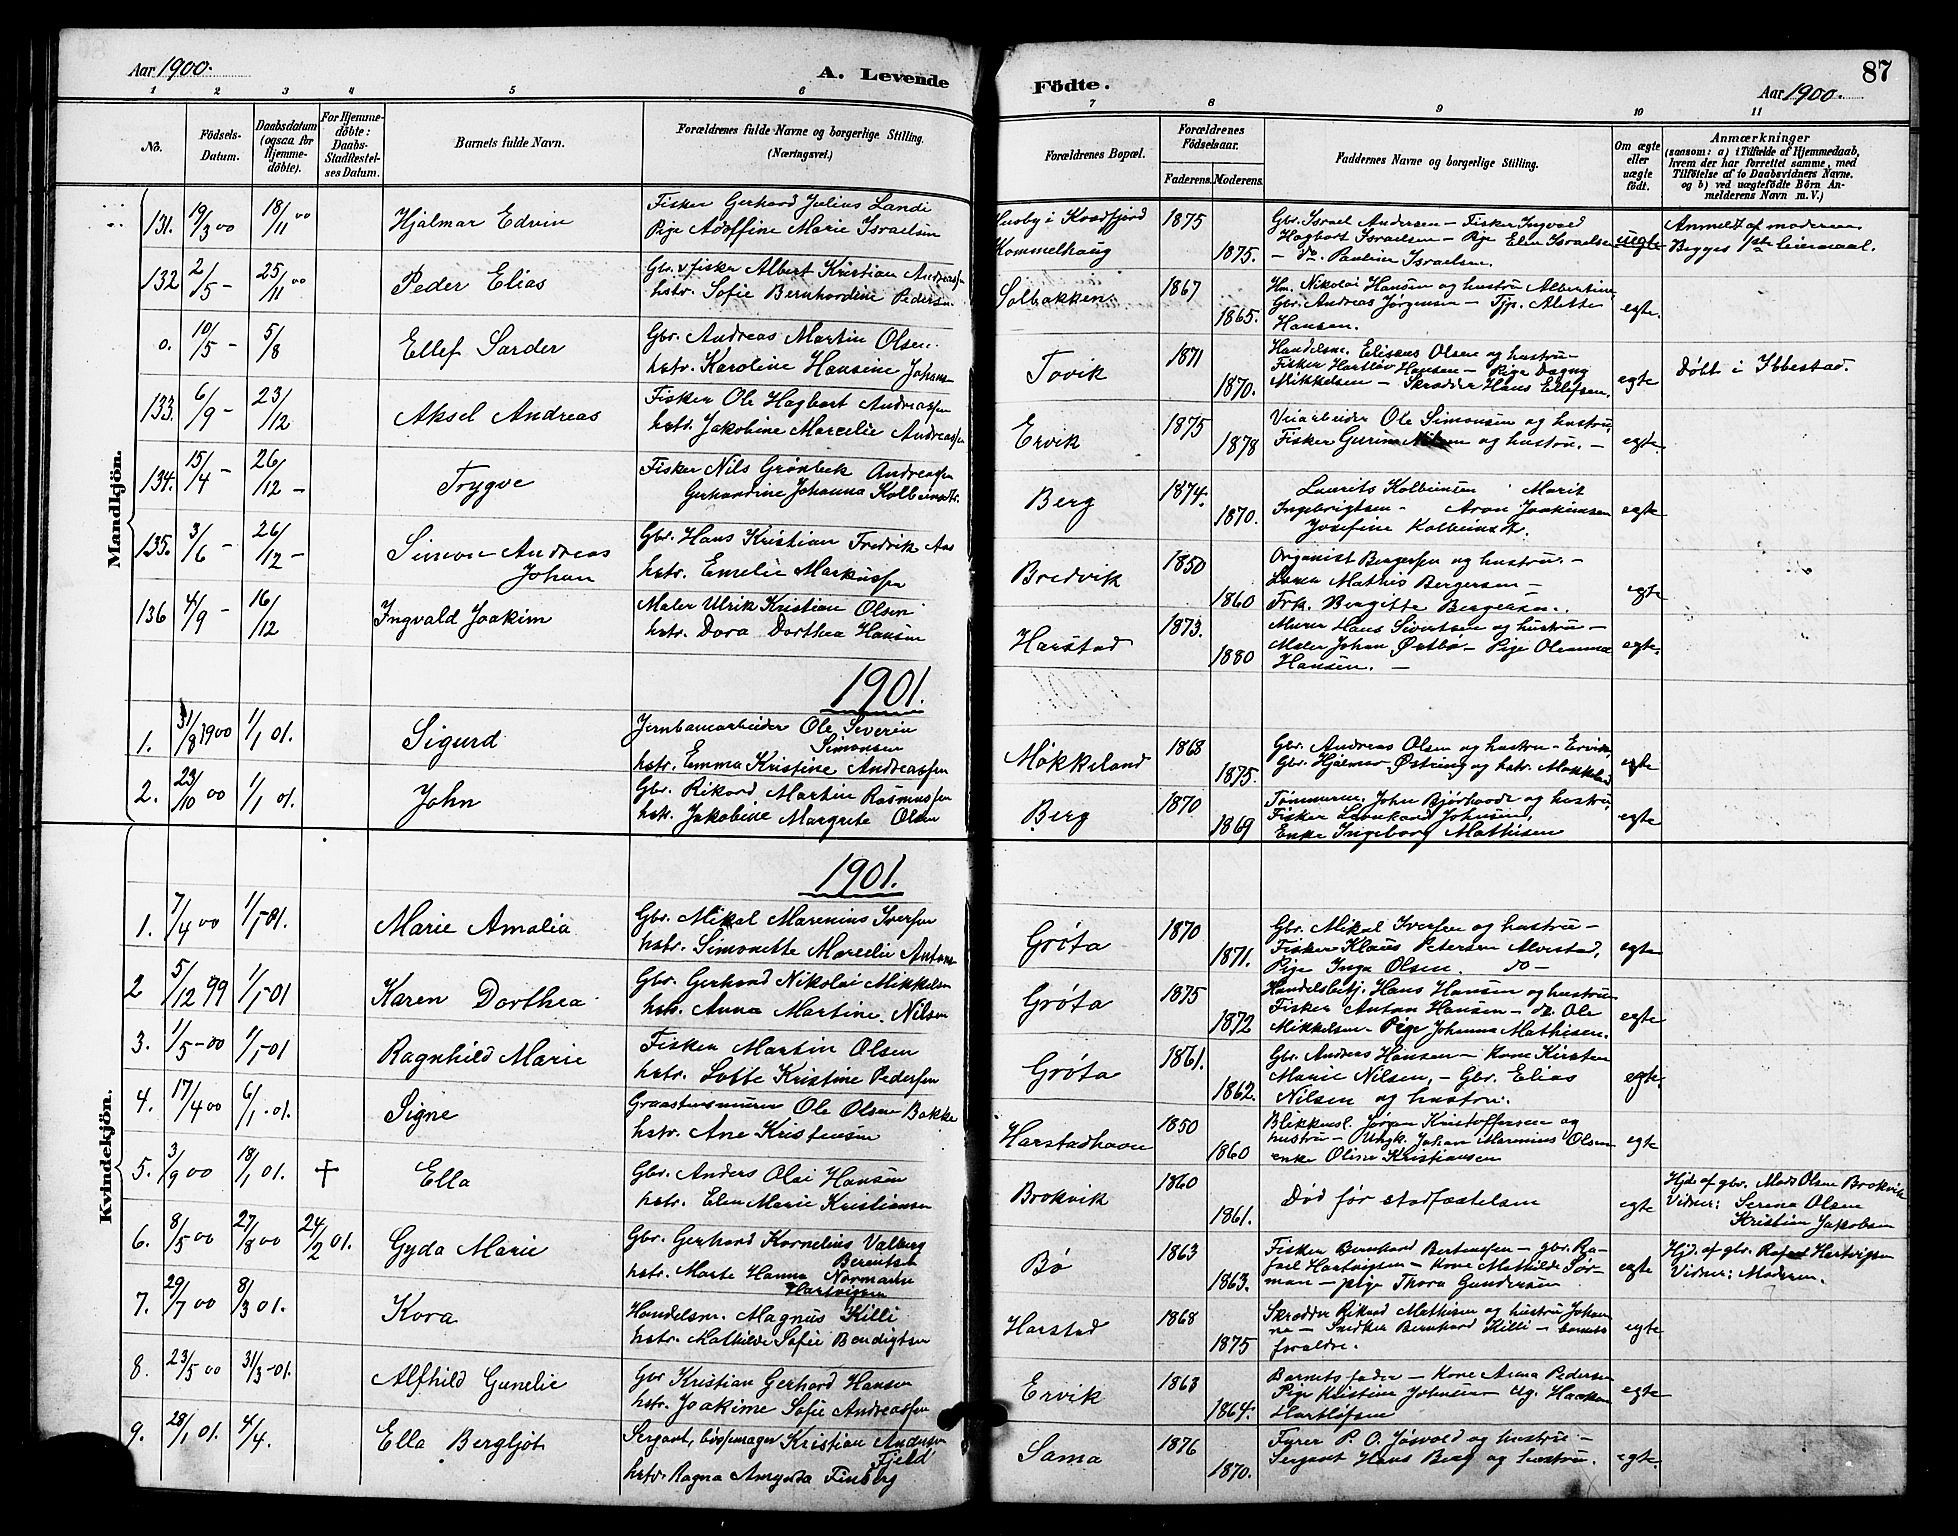 Aar 1900.
A. Levende
Födte.
87
Aar 1900.
1 2 3 4 5 6 7 8 9 10 11
No.
Födsels-
Datum.
Daabsdatum
(ogsaa for
Hjemme-
döbte).
For Hjemme-
döbte:
Daabs-
Stadfæstel-
ses Datum.
Barnets fulde Navn.
Forældrenes fulde Navne og borgerlige Stilling.
(Næringsvei.)
Forældrenes Bopæl.
Forældrenes
Födselsaar.
Faderens. Moderens.
Faddernes Navne og borgerlige Stilling.
Om ægte
eller
uægte
födt.
Anmærkninger
(saasom: a) i Tilfælde af Hjemmedaab,
hvem der har forrettet samme, med
Tilföielse af to Daabsvidners Navne.
og b) ved uægtefödte Börn An-
melderens Navn m. V.)
Mandkjön.
131. 19/3 00 18/11 00 Hjalmar Edvin
Fisker Gerhard Julius Landi
Pige Adolfine Marie Israelsen
Husby i Kvædfjord
Kommelhaug
1875
1875.
Gbr. Israel Andersen – Fisker Ingvald
Hagbart Israelsen – Pige Elen Israelsen
– do. Pauline Israelsen.
uegte
Anmeldt af moderen
Begges 1ste leiermaal.
132 2/5 – 25/11 00 Peder Elias
Gbr. & fisker Albert Kristian Andreassen
hstr. Sofie Bernhardine Pedersen
Solbakken
1867
1865.
Hm. Nikolai Hansen og hustru Albertine,
Gbr. Andreas Jørgensen – Tjp. Alette
Hansen.
egte.
0. 10/5 – 5/8 Ellef Sarder
Gbr. Andreas Martin Olsen
hstr. Karoline Hansine Johans-
Tovik
1871
1870.
Handelsm. Eliseus Olsen og hustru –
Fisker Hartløv Hansen – Pige Dagny
Mikkelsen – Skrædder Hans Ellefsen.
egte
Døbt i Ibbestad.
133. 6/9 – 23/12 Aksel Andreas
Fisker Ole Hagbart Andreassen
hstr. Jakobine Marcelie Andreassen
Ervik
1875
1878
Veiarbeider Ole Simonsen og hustru,
Fisker og hustru. –
egte.
134. 15/4 – 26/12 – Trygve
Fisker Nils Grønbek Andreassen
Gerhardine Johanna Kolbeinsdtr.
Berg
1874.
1870.
Laurits Kolbeinsen Marit
Ingebrigtsen – Aron Joakimsen
Josefine Kolbeinsdt.
egte
135. 3/6 – 26/12 – Simon Andreas
Johan
Gbr. Hans Kristian Fredrik Aas
hstr. Emelie Markussen
Bredvik
1850
1860
Organist Bergersen og hustru. –
Mathis Bergersen –
Frk. Bergitte Bergersen.
egte
136 4/9 – 16/12 Ingvald Joakim
Maler Ulrik Kristian Olsen
hstr. Dora Dorthea Hansen
Harstad
1873.
1880
Murer Hans Sivertsen og hustru –
Maler Johan Østbø – Pige Oleanna
Hansen. –
egte.
1901.
1. 31/8 1900 1/1 01. Sigurd
Jernbanearbeider Ole Severin
Simonsen
hstr. Emma Kristine Andreassen
Møkkeland
1868
1875.
Gbr. Andreas Olsen og hustru – Ervik,
Gbr. Hjalmar Østreng og hstr. Møkkeland
egte
2. 23/10 00 1/1 01. John
Gbr. Rikard Martin Rasmussen
hstr. Jakobine Margrete Olsen
Berg
1870
1869
Tømmerm. John Bjørhovde og hustru,
Fisker Leonhard Johnsen,
Enke Ingeborg Mathisen
egte
Kvindekjön.
1901.
1. 7/4 00 1/1 – 01. Marie Amalia
Gbr. Mikal Marenius Iversen
hstr. Simonette Marcelie Antons-
Grøta
1870
1871.
Gbr. Mikal Iversen og hustru –
Fisker Klaus Petersen Alvestad,
Pige Inga Olsen. do –
egte
2 5/12 99 1/1 – 01 Karen Dorthea
Gbr. Gerhard Nikolai Mikkelsen
hstr. Anna Martine Nilsen
Grøta
1875
1872
Handelsbetj. Hans Hansen og hustru
Fisker Antan Hansen – do. Ole
Mikkelsen – Pige Johanna Mathisen.
egte
3. 1/5 – 00 1/1 – 01 Ragnhild Marie
Fisker Martin Olsen
hstr. Lotte Kristine Pedersen
Grøta
1861.
1862.
Gbr. Anders Hansen – Kone Kirsten
Marie Nilsen, – Gbr. Elias
Nilsen og hustru.
egte
4. 17/4 00 6/1 – 01. Signe
Graastensmurer Ole Olsen Bakke
hstr. Ane Kristensen
Harstadhavn
1850
1860
Blikkensl. Jørgen Kristoffersen og
hustru – Uhgk. Johan Olsen
enke Oline Kristiansen
egte
5. 3/9 00 18/1 01. † Ella
Gbr. Anders Olai Hansen
hstr. Elen Marie Kristiansen
Brokvik
1860
1861.
Død før stadfæstelsen
egte
Hjd. af gbr. Mads Olsen Brokvik
Vidner: Serena Olsen
Kristian Jakobsen
6. 8/5 00 27/8 00 24/2 01. Gyda Marie
Gbr. Gerhard Kornelius Valberg
Berentsen
hstr. Marte Hanna Normanda
Hartvigsen
Bø
1863
1863.
Fisker Bernhard Berteussen – gbr. Ra-
fael Hartvigsen – Kone Mathilde Sør-
man – pige Thora Gundersen
egte
Hjd. af gbr. Rafael Hartvigsen
Vidner: Moderen.
7. 29/7 00 8/3 01. Kora
Handelsm. Magnus Killi
hstr. Mathilde Sofie Bendigtsen
Harstad
1868
1875
Skrædder Rikard Mathisen og hustru Johan-
na – Snedker Bernhard Killi – barnets
forældre.
egte
8. 23/5 00 31/3 – 01. Alfhild Gunelie
Gbr Kristian Gerhard Hansen
hstr. Joakime Sofie Andreassen
Ervik
1863
1864.
Barnets fader – Kone Anna Pedersen
Pige Kristine Johnsen – Ug. Haakon
Hartløfsen
egte
9. 28/1 01. 4/4. Ella Bergljot
Sergant, bøssemager Kristian Andersen
Fjeld
hstr. Ragna Amanda Finberg
Sama
1876
1870.
Fyrer P. O. Jøsvold og hustru –
Sergant Hans Berg og hustru.
egte.